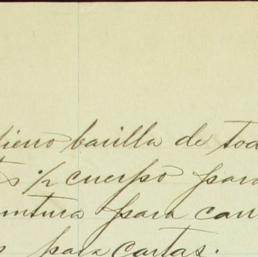 fierro barilla de tod
s ½ cuerpo para
intura para carr
para cartas.